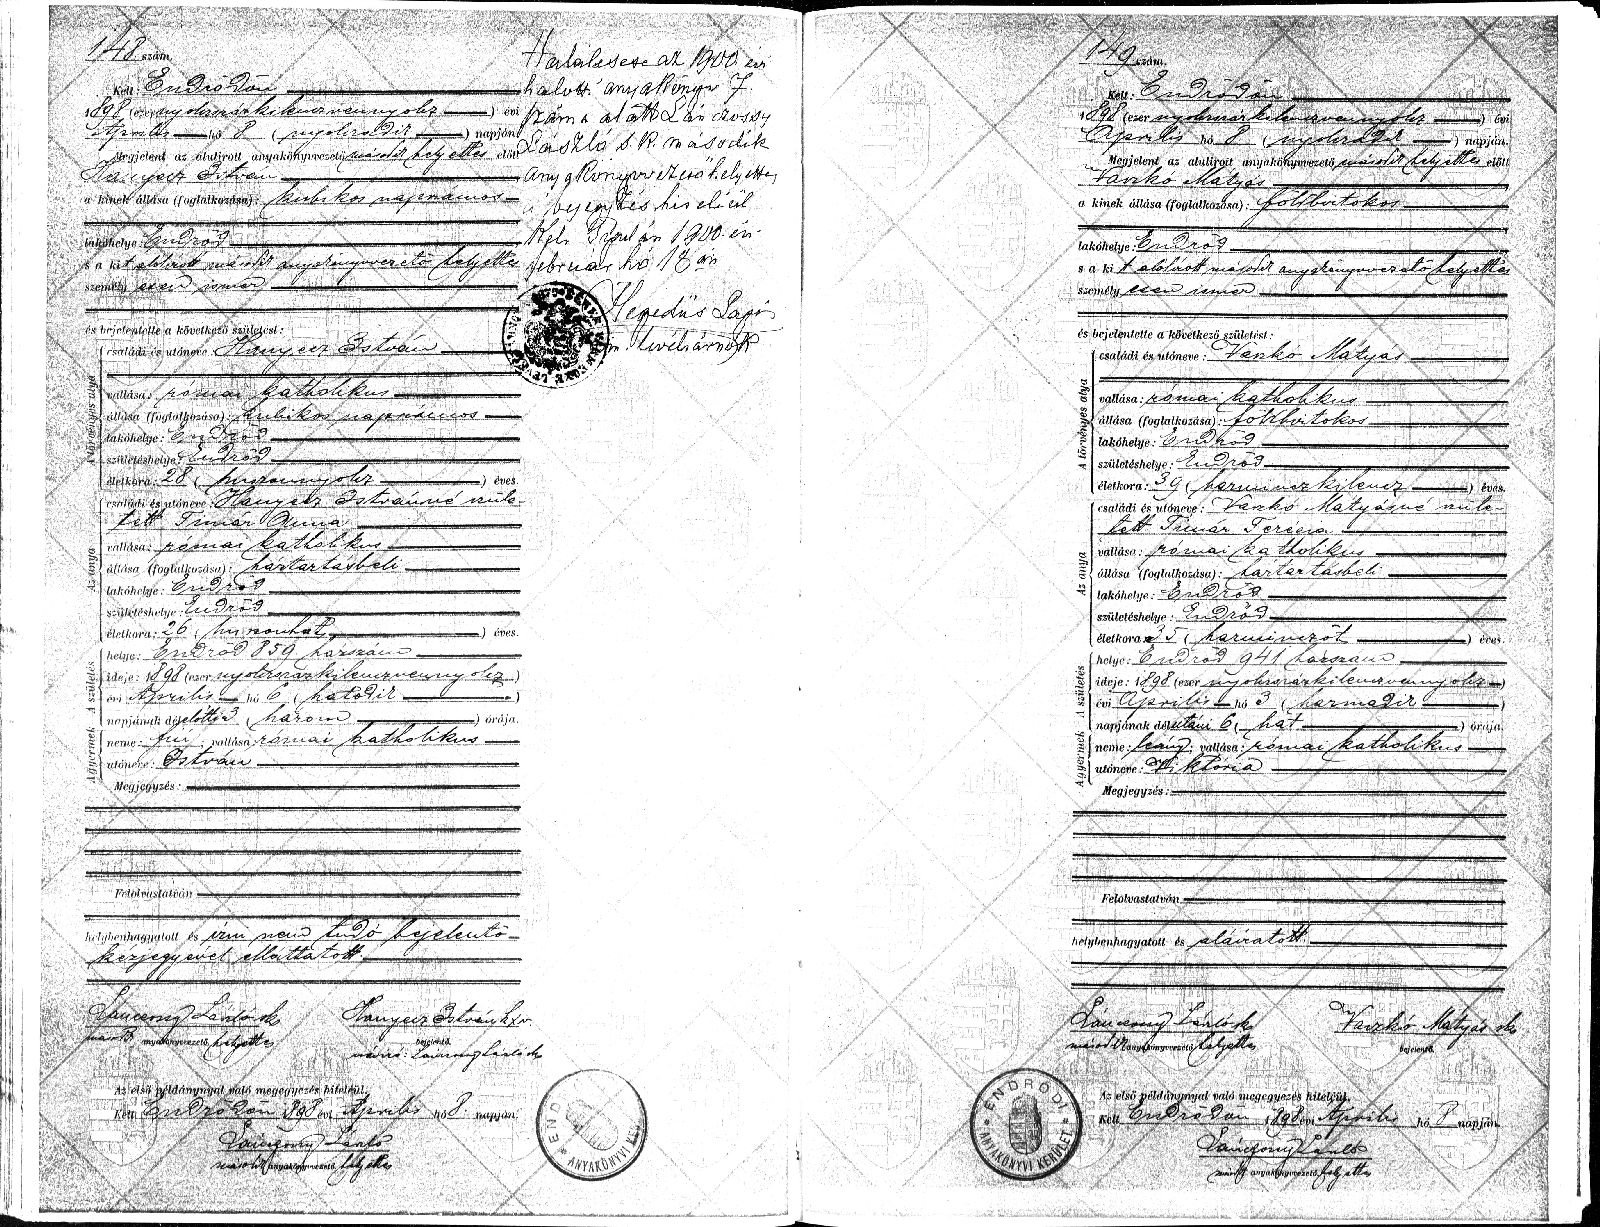 148. szám.
Kelt Endrődön
1898 (ezer nyolcszázkilenczvennyolcz) évi
Április hó 8 (nyolczadik) napján
Megjelent az alulirott anyakönyvvezető második helyettes előtt
Hanyecz István
a kinek állása (foglalkozása): kubikos napszámos
lakóhelye: Endrőd
s a kit alólirott második anyakönyvvezető helyettes
személyesen ismer
és bejelentette a következő születést:
A törvényes atya
családi és utóneve: Hanyecz István
vallása: római katholikus
állása (foglalkozása): kubikos napszámos
lakóhelye: Endrőd
születéshelye: Endrőd
életkora: 28 (huszonnyolcz) éves.
Az anya
családi és utóneve: Hanyecz Istvánné szüle-
tett Timár Anna
vallása: római katholikus
állása (foglalkozása): háztartásbeli
lakóhelye: Endrőd
születéshelye: Endrőd
életkora: 26 (huszonhat) éves.
A születés
helye: Endrőd 859 házszám
ideje: 1898 (ezer nyolczszázkilenczvennyolcz)
évi Április hó 6 (hatodik)
napjának délelőtti 3 (három) órája.
A gyermek
neme: fiú; vallása: római katholikus
utóneve: István
Megjegyzés:
Felolvastatván
helybenhagyatott és irni nem tudó bejelentő
kézjegyével elláttatott.
Lánczossy László sk
második anyakönyvvezető helyettes
Hanyecz István kzv
bejelentő
névíró: Lánczossy László sk
Az első példánynyal való megegyezés hiteléül.
Kelt Endrődön 1898 évi Április hó 8. napján.
Lánczossy László
második anyakönyvvezető helyettes
Halálesete az 1900 évi
halott anyakönyv 7.
szám a alatt Lánczossy
László s. k. második
anyakönyvvezető helyettes
bejegyzés hiteléül
Kelt Gyulán 1900. évi
február hó 18 án
Hegedűs Lajos
m. levéltárnok
ENDRŐDI ANYAKÖNYVI KERÜLET
149. szám.
Kelt: Endrődön
1898 (ezer nyolczszázkilenczvennyolcz) évi
Április hó 8 (nyolczadik) napján.
Megjelent az alulirott anyakönyvvezető második helyettes előtt
Vaszkó Mátyás
a kinek állása (foglalkozása): földbirtokos
lakóhelye: Endrőd
s a kit alólirott második anyakönyvvezető helyettes
személyesen ismer
és bejelentette a következő születést:
A törvényes atya
családi és utóneve: Vaszkó Mátyás
vallása: római katholikus
állása (foglalkozása): földbirtokos
lakóhelye: Endrőd
születéshelye: Endrőd
életkora: 39 (harminczkilencz) éves.
Az anya
családi és utóneve: Vaszkó Mátyásné szüle-
tett Timár Terézia
vallása: római katholikus
állása (foglalkozása): háztartásbeli
lakóhelye: Endrőd
születéshelye: Endrőd
életkora: 35 (harminczöt) éves
A születés
helye: Endrőd 941 házszám
ideje: 1898 (ezer nyolczszázkilenczvennyolcz)
évi Április hó 3 (harmadik)
napjának délutáni 6 (hat) órája.
A gyermek
neme: leány; vallása: római katholikus
utóneve: Viktória
Megjegyzés:
Felolvastatván
helybenhagyatott és aláíratott.
Lánczossy László sk
második anyakönyvvezető helyettes
Vaszkó Mátyás sk
bejelentő.
Az első példánynyal való megegyezés hiteléül.
Kelt Endrődön 1898 évi Április hó 8 napján.
Lánczossy László
második anyakönyvvezető helyettes
ENDRŐDI ANYAKÖNYVI KERÜLET